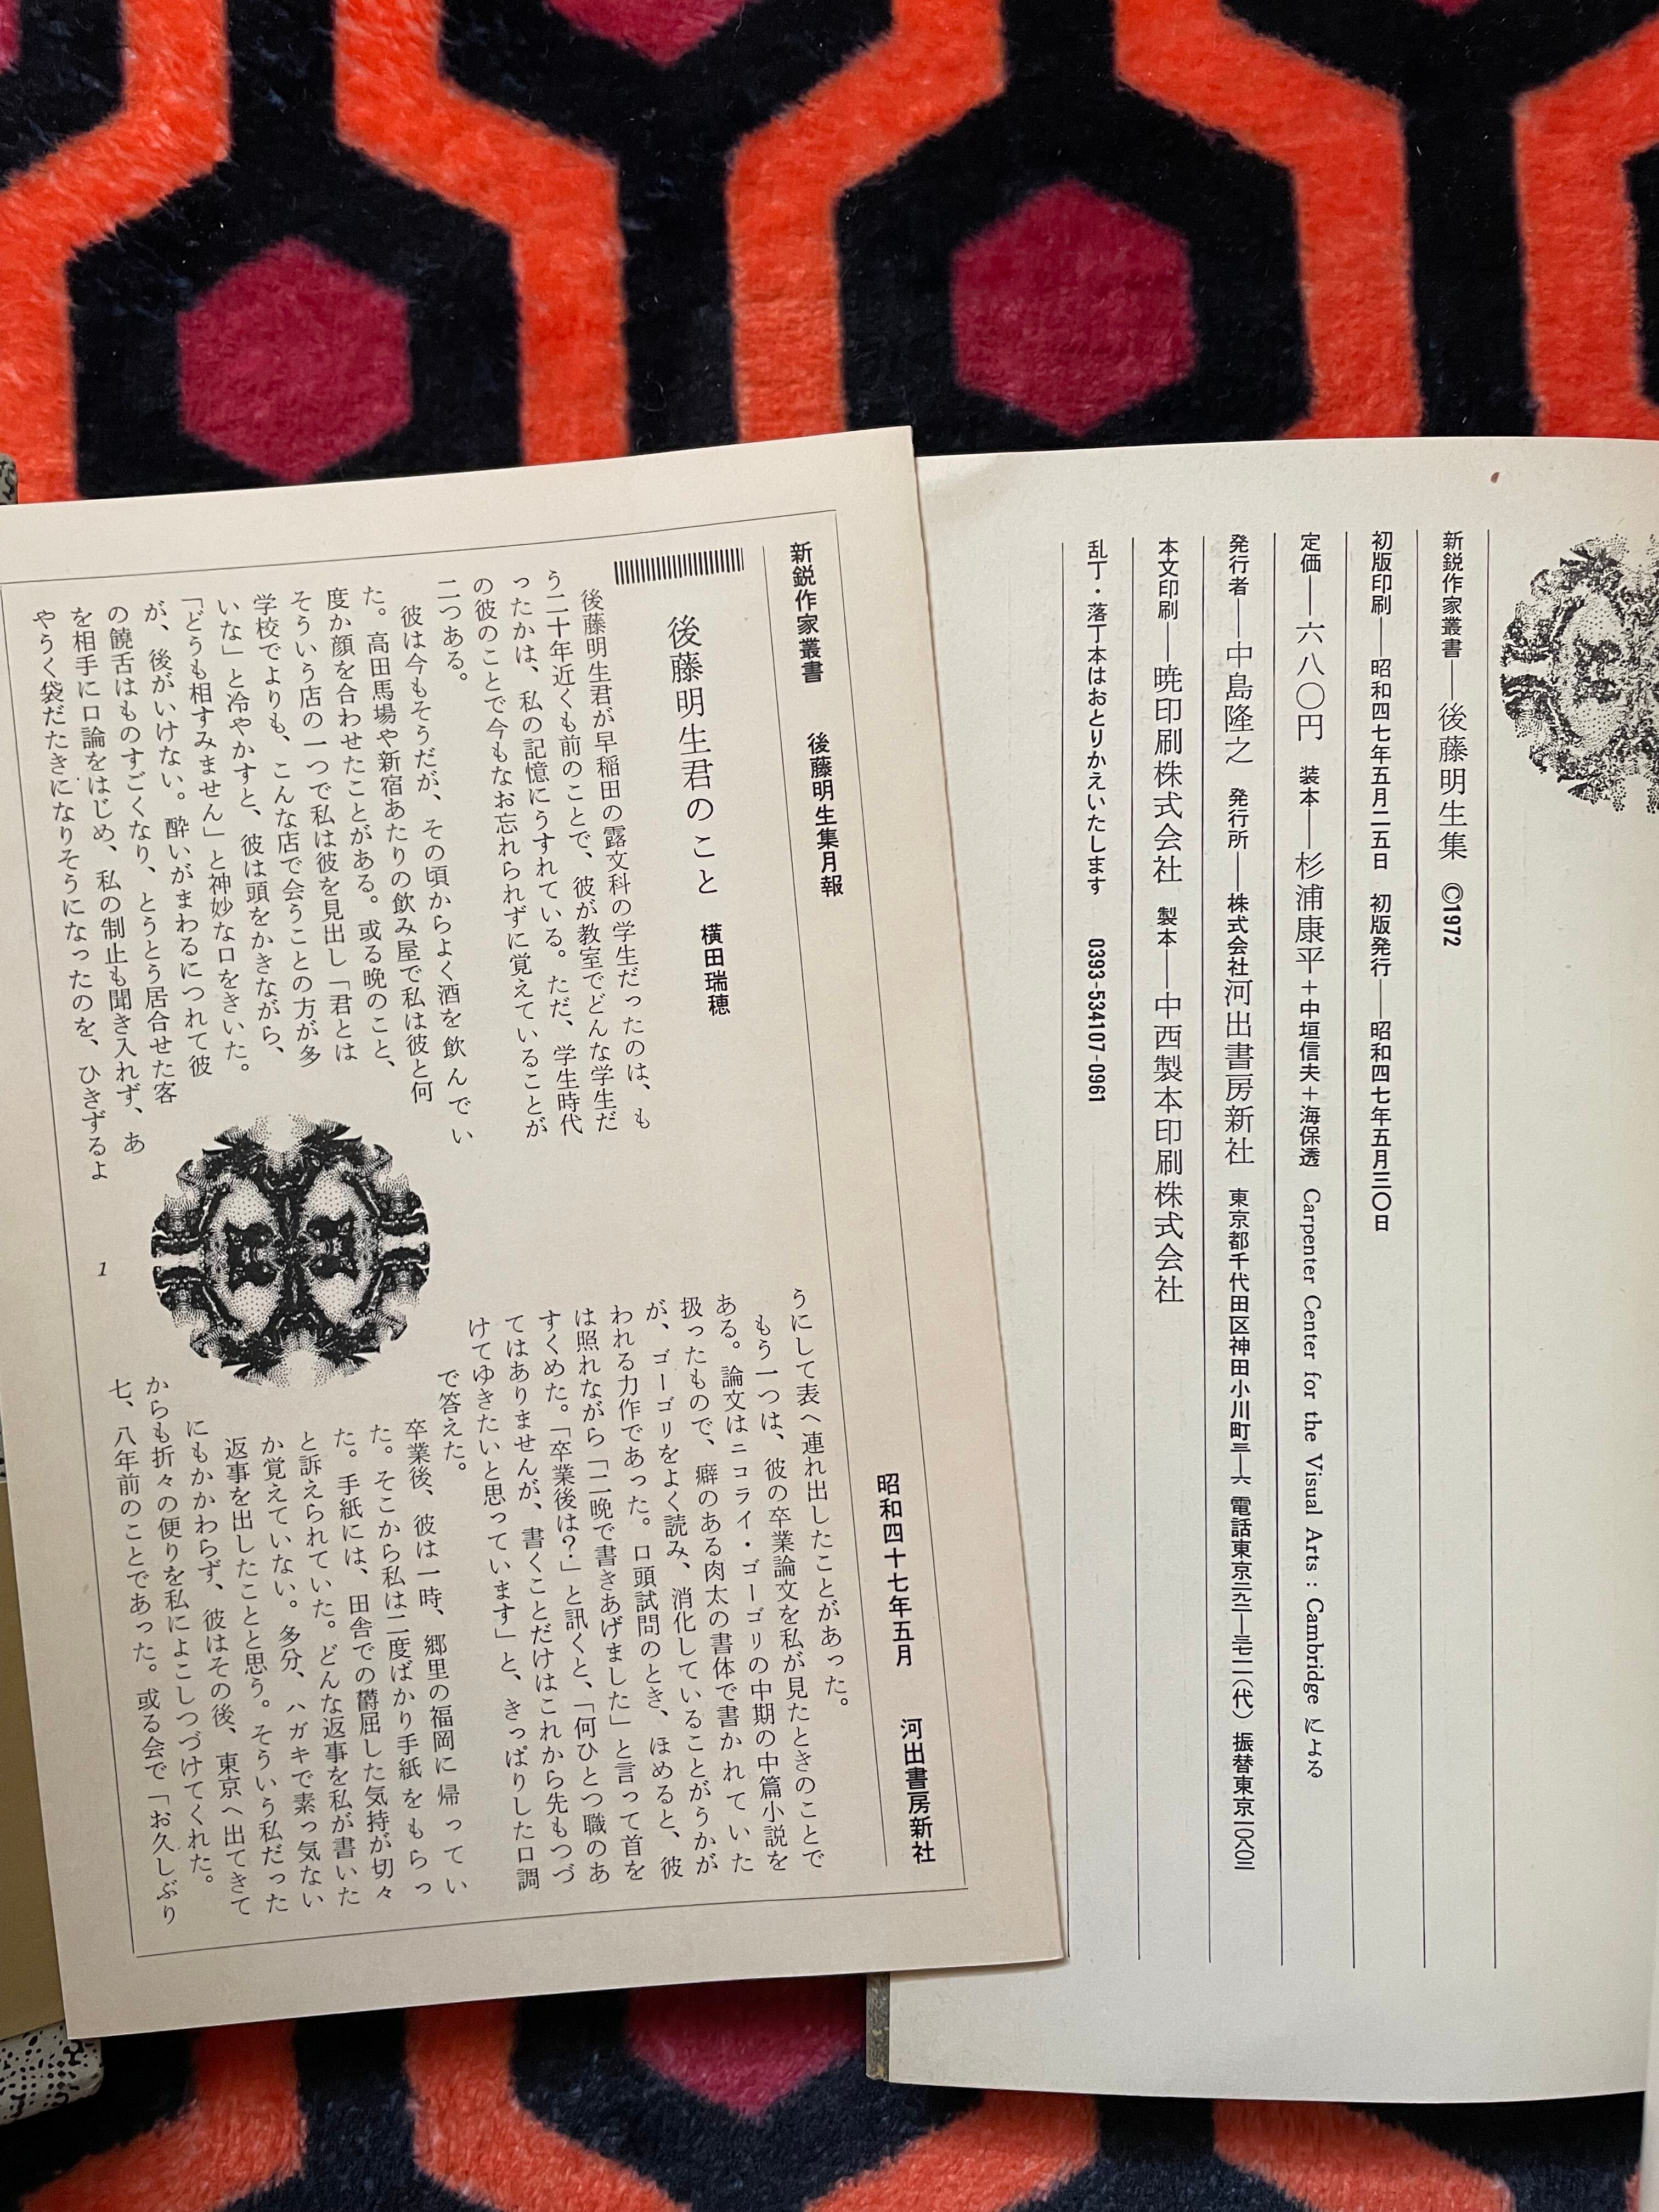 新鋭作家叢書――後藤明生集 ©1972
初版印刷――昭和四七年五月二五日 初版発行――昭和四七年五月三〇日
定価――六八〇円 装本――杉浦康平+中垣信夫+海保透 Carpenter Center for the Visual Arts : Cambridge による
発行者――中島隆之 発行所――株式会社河出書房新社 東京都千代田区神田小川町三―六 電話東京二九二―三七一一(代) 振替東京一〇八〇二
本文印刷――暁印刷株式会社 製本――中西製本印刷株式会社
乱丁・落丁本はおとりかえいたします 0393-534107-0961
新鋭作家叢書 後藤明生集月報 昭和四十七年五月 河出書房新社
後藤明生君のこと 横田瑞穂
後藤明生君が早稲田の露文科の学生だったのは、も
う二十年近くも前のことで、彼が教室でどんな学生だ
ったかは、私の記憶にうすれている。ただ、学生時代
の彼のことで今もなお忘れられずに覚えていることが
二つある。
彼は今もそうだが、その頃からよく酒を飲んでい
た。高田馬場や新宿あたりの飲み屋で私は彼と何
度か顔を合わせたことがある。或る晩のこと、
そういう店の一つで私は彼を見出し「君とは
学校でよりも、こんな店で会うことの方が多
いな」と冷やかすと、彼は頭をかきながら、
「どうも相すみません」と神妙な口をきいた。
が、後がいけない。酔いがまわるにつれて彼
の饒舌はものすごくなり、とうとう居合せた客
を相手に口論をはじめ、私の制止も聞き入れず、あ
やうく袋だたきになりそうになったのを、ひきずるよ
うにして表へ連れ出したことがあった。
もう一つは、彼の卒業論文を私が見たときのことで
ある。論文はニコライ・ゴーゴリの中期の中篇小説を
扱ったもので、癖のある肉太の書体で書かれていた
が、ゴーゴリをよく読み、消化していることがうかが
われる力作であった。口頭試問のとき、ほめると、彼
は照れながら「二晩で書きあげました」と言って首を
すくめた。「卒業後は?」と訊くと、「何ひとつ職のあ
てはありませんが、書くことだけはこれから先もつづ
けてゆきたいと思っています」と、きっぱりした口調
で答えた。
卒業後、彼は一時、郷里の福岡に帰ってい
た。そこから私は二度ばかり手紙をもらっ
た。手紙には、田舎での欝屈した気持が切々
と訴えられていた。どんな返事を私が書いた
か覚えていない。多分、ハガキで素っ気ない
返事を出したことと思う。そういう私だった
にもかかわらず、彼はその後、東京へ出てきて
からも折々の便りを私によこしつづけてくれた。
七、八年前のことであった。或る会で「お久しぶり
1